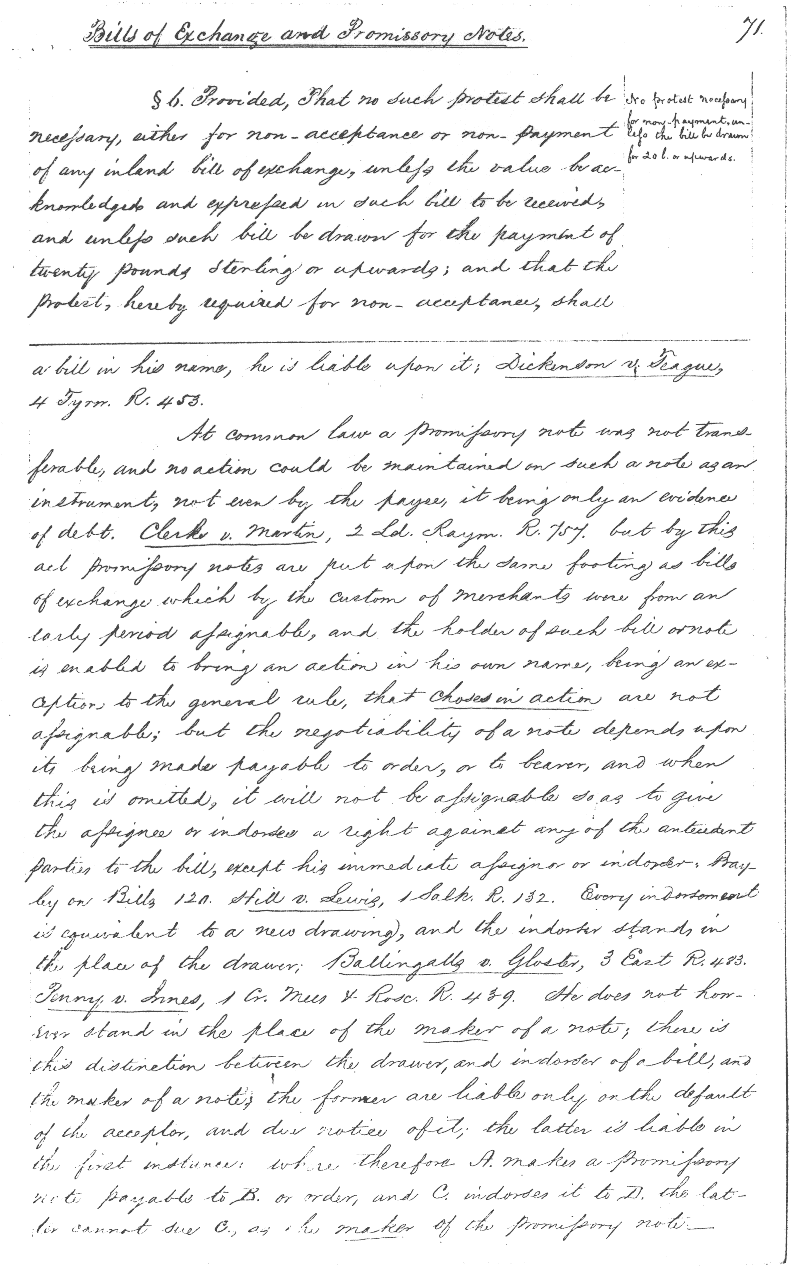 Bills of Exchange and Promissory Notes.
71.
§ 6. Provided, That no such protest shall be
necessary, either for non-acceptance or non-payment
of any inland bill of exchange, unless the value be ac-
knowledged and expressed in such bill to be received,
and unless such bill be drawn for the payment of
twenty pounds sterling or upwards; and that the
protest, hereby required for non-acceptance, shall
No protest necessary
for non-payment, un-
less the bill be drawn
for 20 l. or upwards.
a bill in his name, he is liable upon it; Dickenson v. Teague,
4 Tyrw. R. 453.
At common law a promissory note was not trans-
ferable, and no action could be maintained on such a note as an
instrument, not even by the payee, it being only an evidence
of debt. Clerke v. Martin, 2 Ld. Raym. R. 757. but by this
act promissory notes are put upon the same footing as bills
of exchange which by the custom of merchants were from an
early period assignable, and the holder of such bill or note
is enabled to bring an action in his own name, being an ex-
ception to the general rule, that choses in action are not
assignable; but the negotiability of a note depends upon
its being made payable to order, or to bearer, and when
this is omitted, it will not be assignable so as to give
the assignee or indorsee a right against any of the antecedent
parties to the bill, except his immediate assignor or indorser. Bay-
ley on Bills 120. Hill v. Lewis, 1 Salk. R. 132. Every indorsement
is equivalent to a new drawing, and the indorser stands in
the place of the drawer; Ballingalls v. Gloster, 3 East R. 483.
Penny v. Innes, 1 Cr. Mees & Rosc. R. 439. He does not how-
ever stand in the place of the maker of a note; there is
this distinction between the drawer, and indorser of a bill, and
the maker of a note; the former are liable only on the default
of the acceptor, and due notice of it; the latter is liable in
the first instance: where therefore A. makes a promissory
note payable to B. or order, and C. indorses it to D. the lat-
ter cannot sue C., as the maker of the promissory note.—